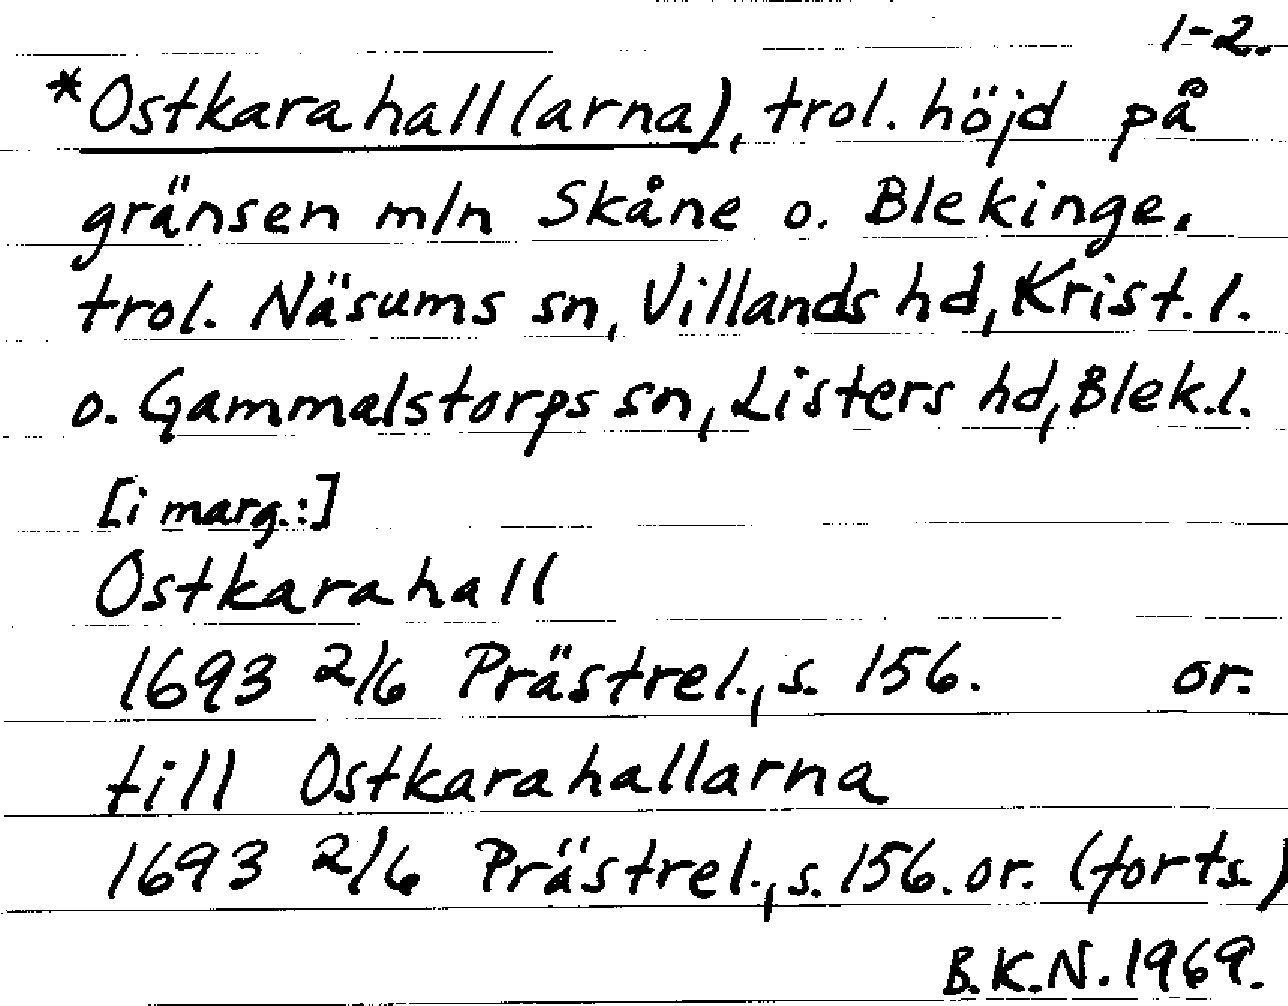 1-2.
*Ostkarahall(arna), trol. höjd på
gränsen mln Skåne o. Blekinge,
trol. Näsums sn, Villands hd, Krist. l.
o. Gammalstorps sn, Listers hd, Blek.l.
[i marg.:]
Ostkarahall
1693 2/6 Prästrel., s. 156. or.
till Ostkarahallarna
1693 2/6 Prästrel., s. 156. or. (forts.)
B.K.N. 1969.